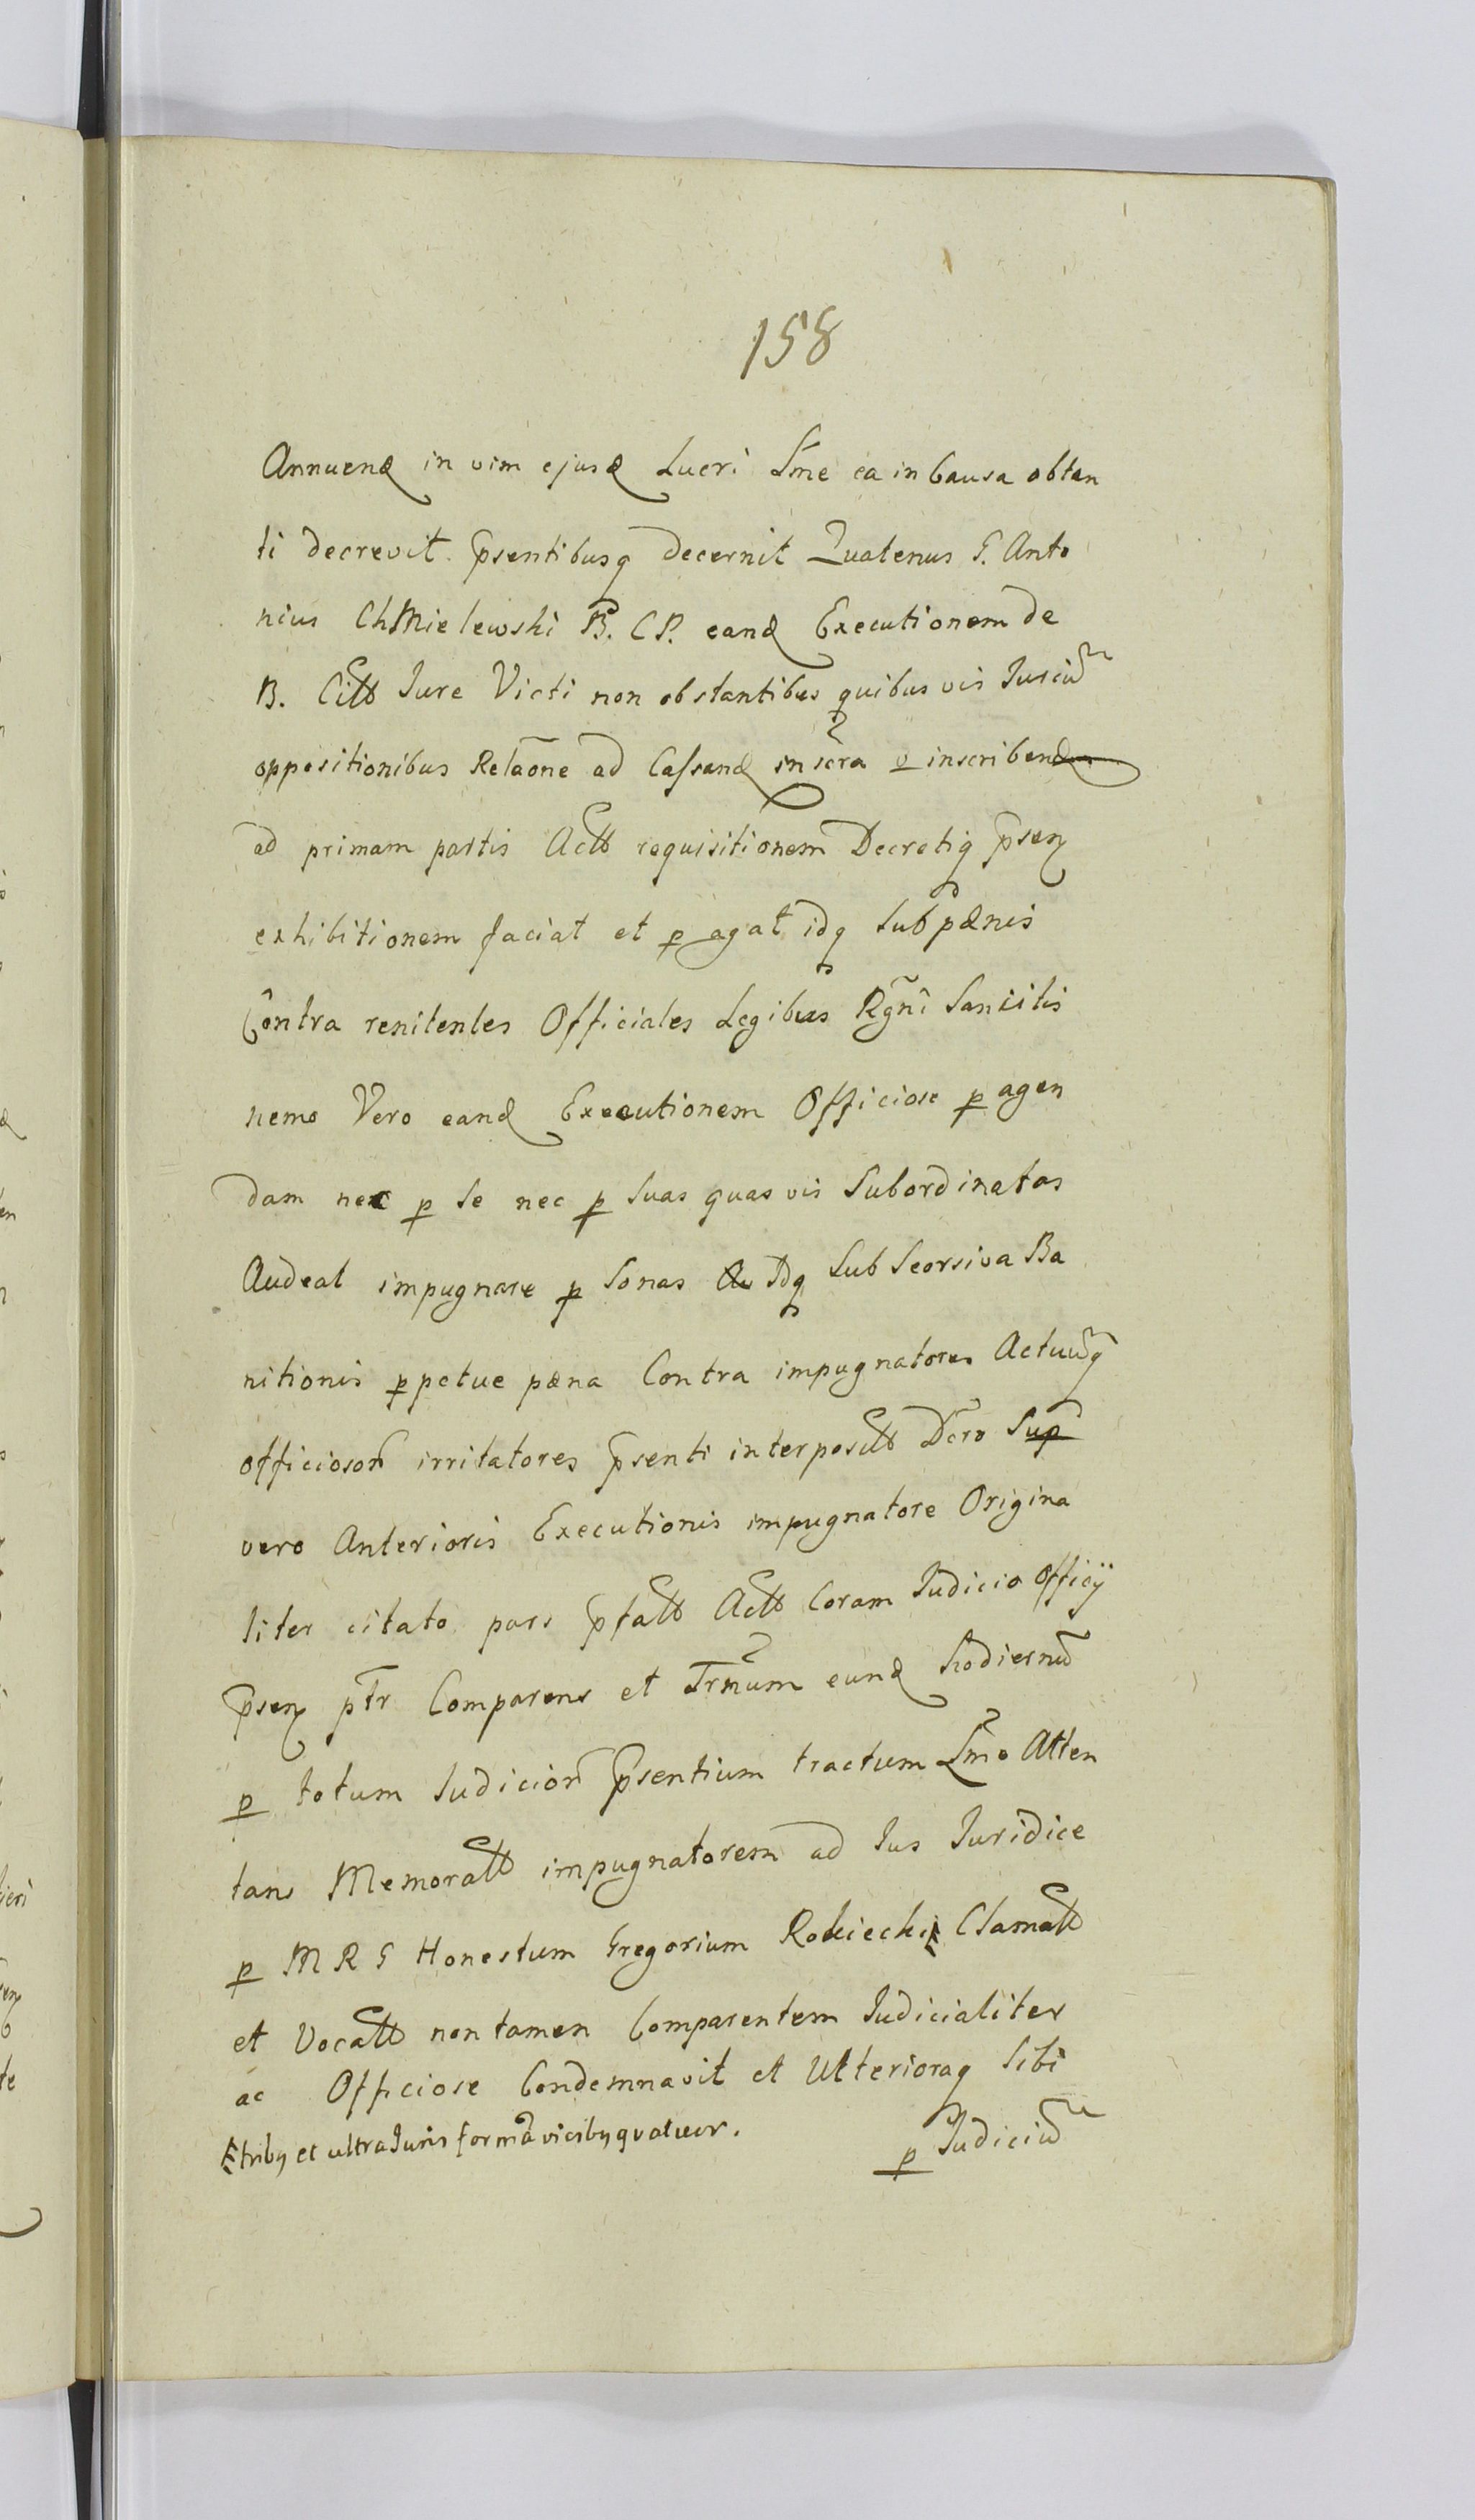 158
Annuend in vim ejusd Lucri Lr̃me ea in Causa obten
ti decrevit p̃sentibusq decernit Quatenus G. Anto
nius ChMielewski B. C P. eand Executionem de
B. Citto Jure Victi non obstantibus quibus vis Juriũ
oppositionibus Relaõne ad Cassand inscra v inscribend
ad primam partis Actto requisitionem Decretiq p̃sen
exhibitionem faciat et p agat idq sub pænis
Contra renitentes Officiales Legibus Rgni Sancitis
nemo Vero eand Executionem Officiose p agen
dam nec p se nec p suas quas vis Subordinatas
Audeat impugnare p sonas Idq Sub Seorsiva Ba
nitionis p petue pæna Contra impugnatores Actuũq
officiosor̃ irritatores p̃senti interposito Dcro Sup
vero Anterioris Executionis impugnatore Origina
liter citato pars p̃fatto Actto Coram Judicio Officÿ
p̃sen ptr Comparens et Trm̃um eund hodiernũ
p totum Judicior̃ p̃sentium tractum Lr̃me Atten
tans Memoratto impugnatorem ad Jus Juridice
p M R G Honestum Gregorium Rokiecki Clamatto
et Vocatto non tamen Comparentem Judicialiter
ac Officiose Condemnavit et Ulterioraq Sibi
triby et ultra Juris formã viciby quatuor.
p Judiciũ